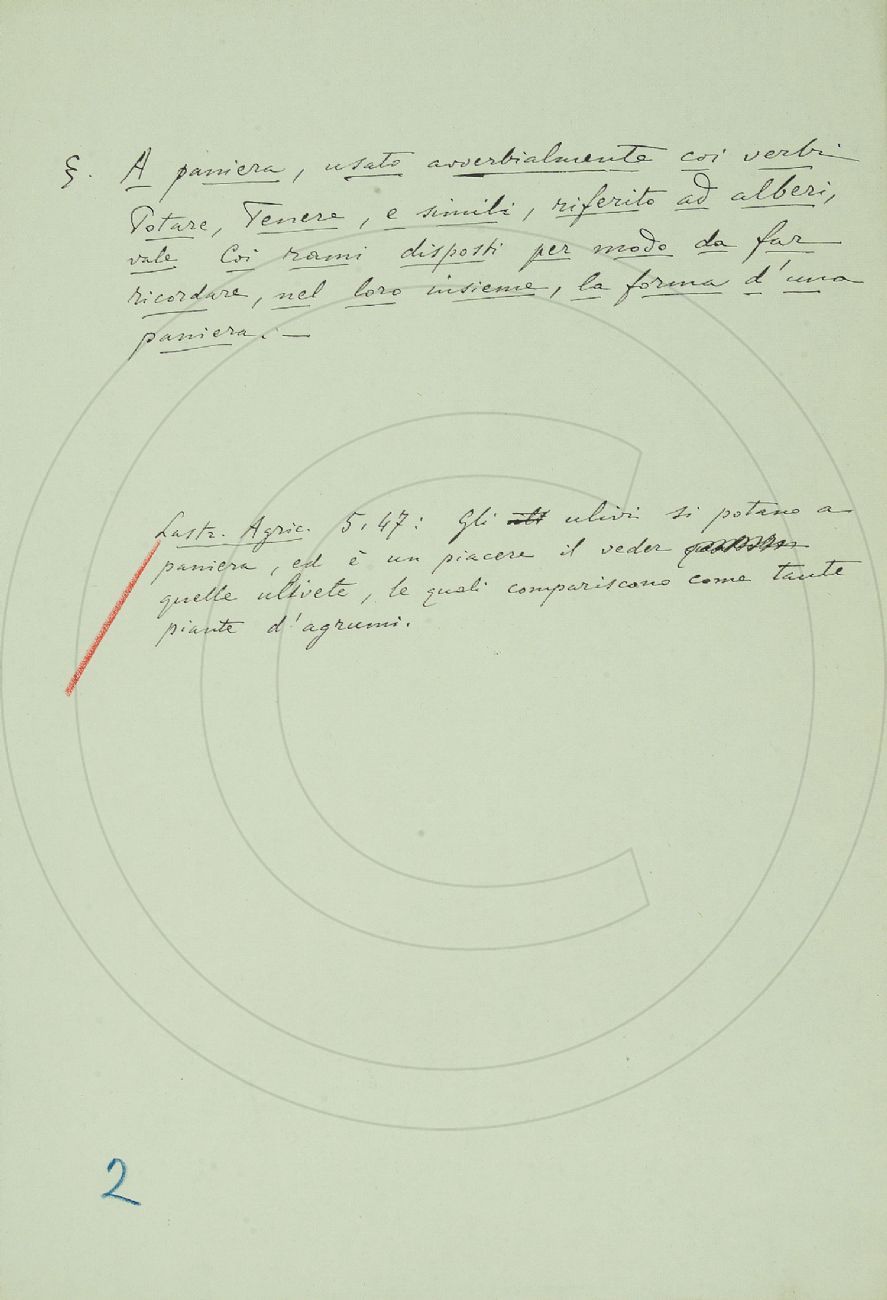 §. A paniera, usato avverbialmente coi verbi
Potare, Tenere, e simili, riferito ad alberi,
vale Coi rami disposti per modo da far
ricordare, nel loro insieme, la forma d'una
paniera. —
Lastr. Agric. 5. 47: Gli ulivi si potano a
paniera, ed è un piacere il veder
quelle ulivete, le quali compariscono come tante
piante d'agrumi.
2